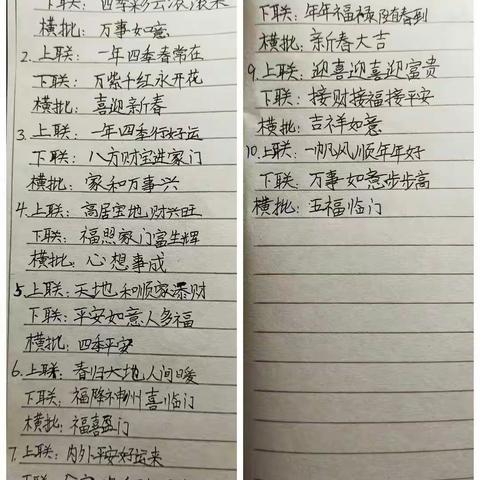 下联：四季彩云滚滚来
横批：万事如意
2.上联：一年四季春常在
下联：万紫千红永开花
横批：喜迎新春
3.上联：一年四季行好运
下联：八方财宝进家门
横批：家和万事兴
4.上联：高居宝地财兴旺
下联：福照家门富生辉
横批：心想事成
5.上联：天地和顺家添财
下联：平安如意人多福
横批：四季平安
6.上联：春归大地人间暖
下联：福降神州喜临门
横批：福喜盈门
7.上联：内外平安好运来
下联：
下联：年年福禄随春到
横批：新春大吉
9.上联：迎喜迎喜迎富贵
下联：接财接福接平安
横批：吉祥如意
10.上联：一帆风顺年年好
下联：万事如意步步高
横批：五福临门